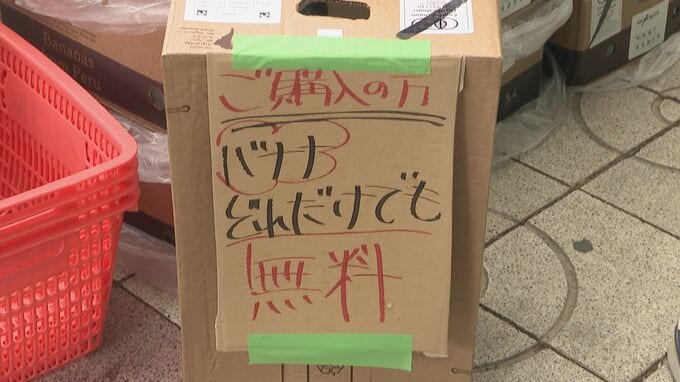 Bananas
from Peru
ご購入の方
バナナ
どれだけでも
無料